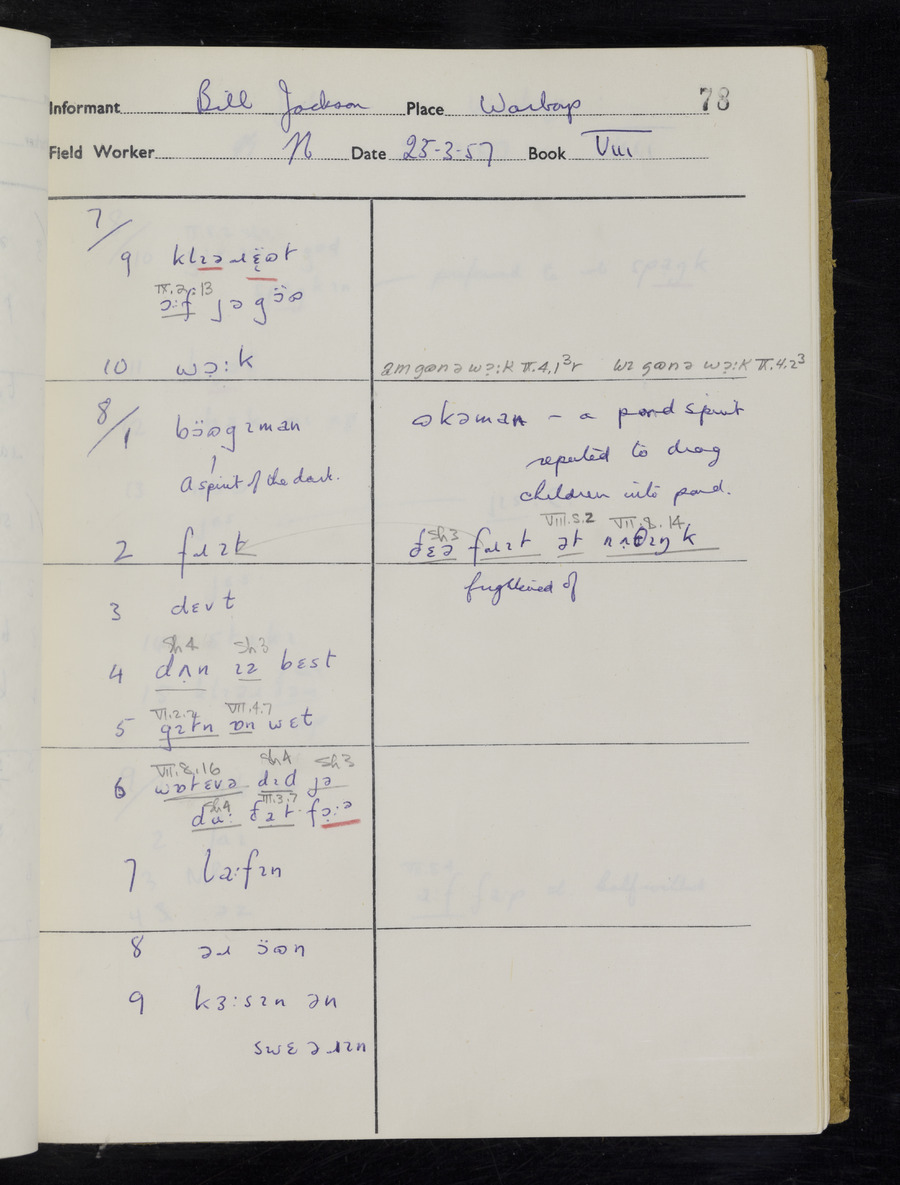 Informant Bill Jackson Place Warboys 78
Field Worker N Date 25-3-57 Book VIII
7/
9 klɪəɹɛ̈ʊt
IX.2.13
ɔ:f jə gɔ̈ʊ
10 wə:k amgʊnə wə:k VI.4.1³r wɪ gʊnə wə:k VI.4.2³
8/
1 bɔ̈ʊgɪman ʊkəman – a pond spirit
a spirit of the dark. reputed to drag
children into pond.
Sh3 VIII.5.2 VII.8.14
2 fɹɪt ðɛə fɹɪt ət nʌθɪŋk
frightened of
3 dɛvt
Sh4 Sh3
4 dʌn ɪz bɛst
VI.2.2 VII.4.7
5 gɪtn ɒn wɛt
VII.8.16 Sh4 Sh3
6 wɒtɛvə dɪd jə
Sh4 III.3.7
du: ðat fɔ:ə
7 la:fɪn
8 əɹ ɔ̈ʊn
9 kɜ:sɪn ən
swɛəɹɪn